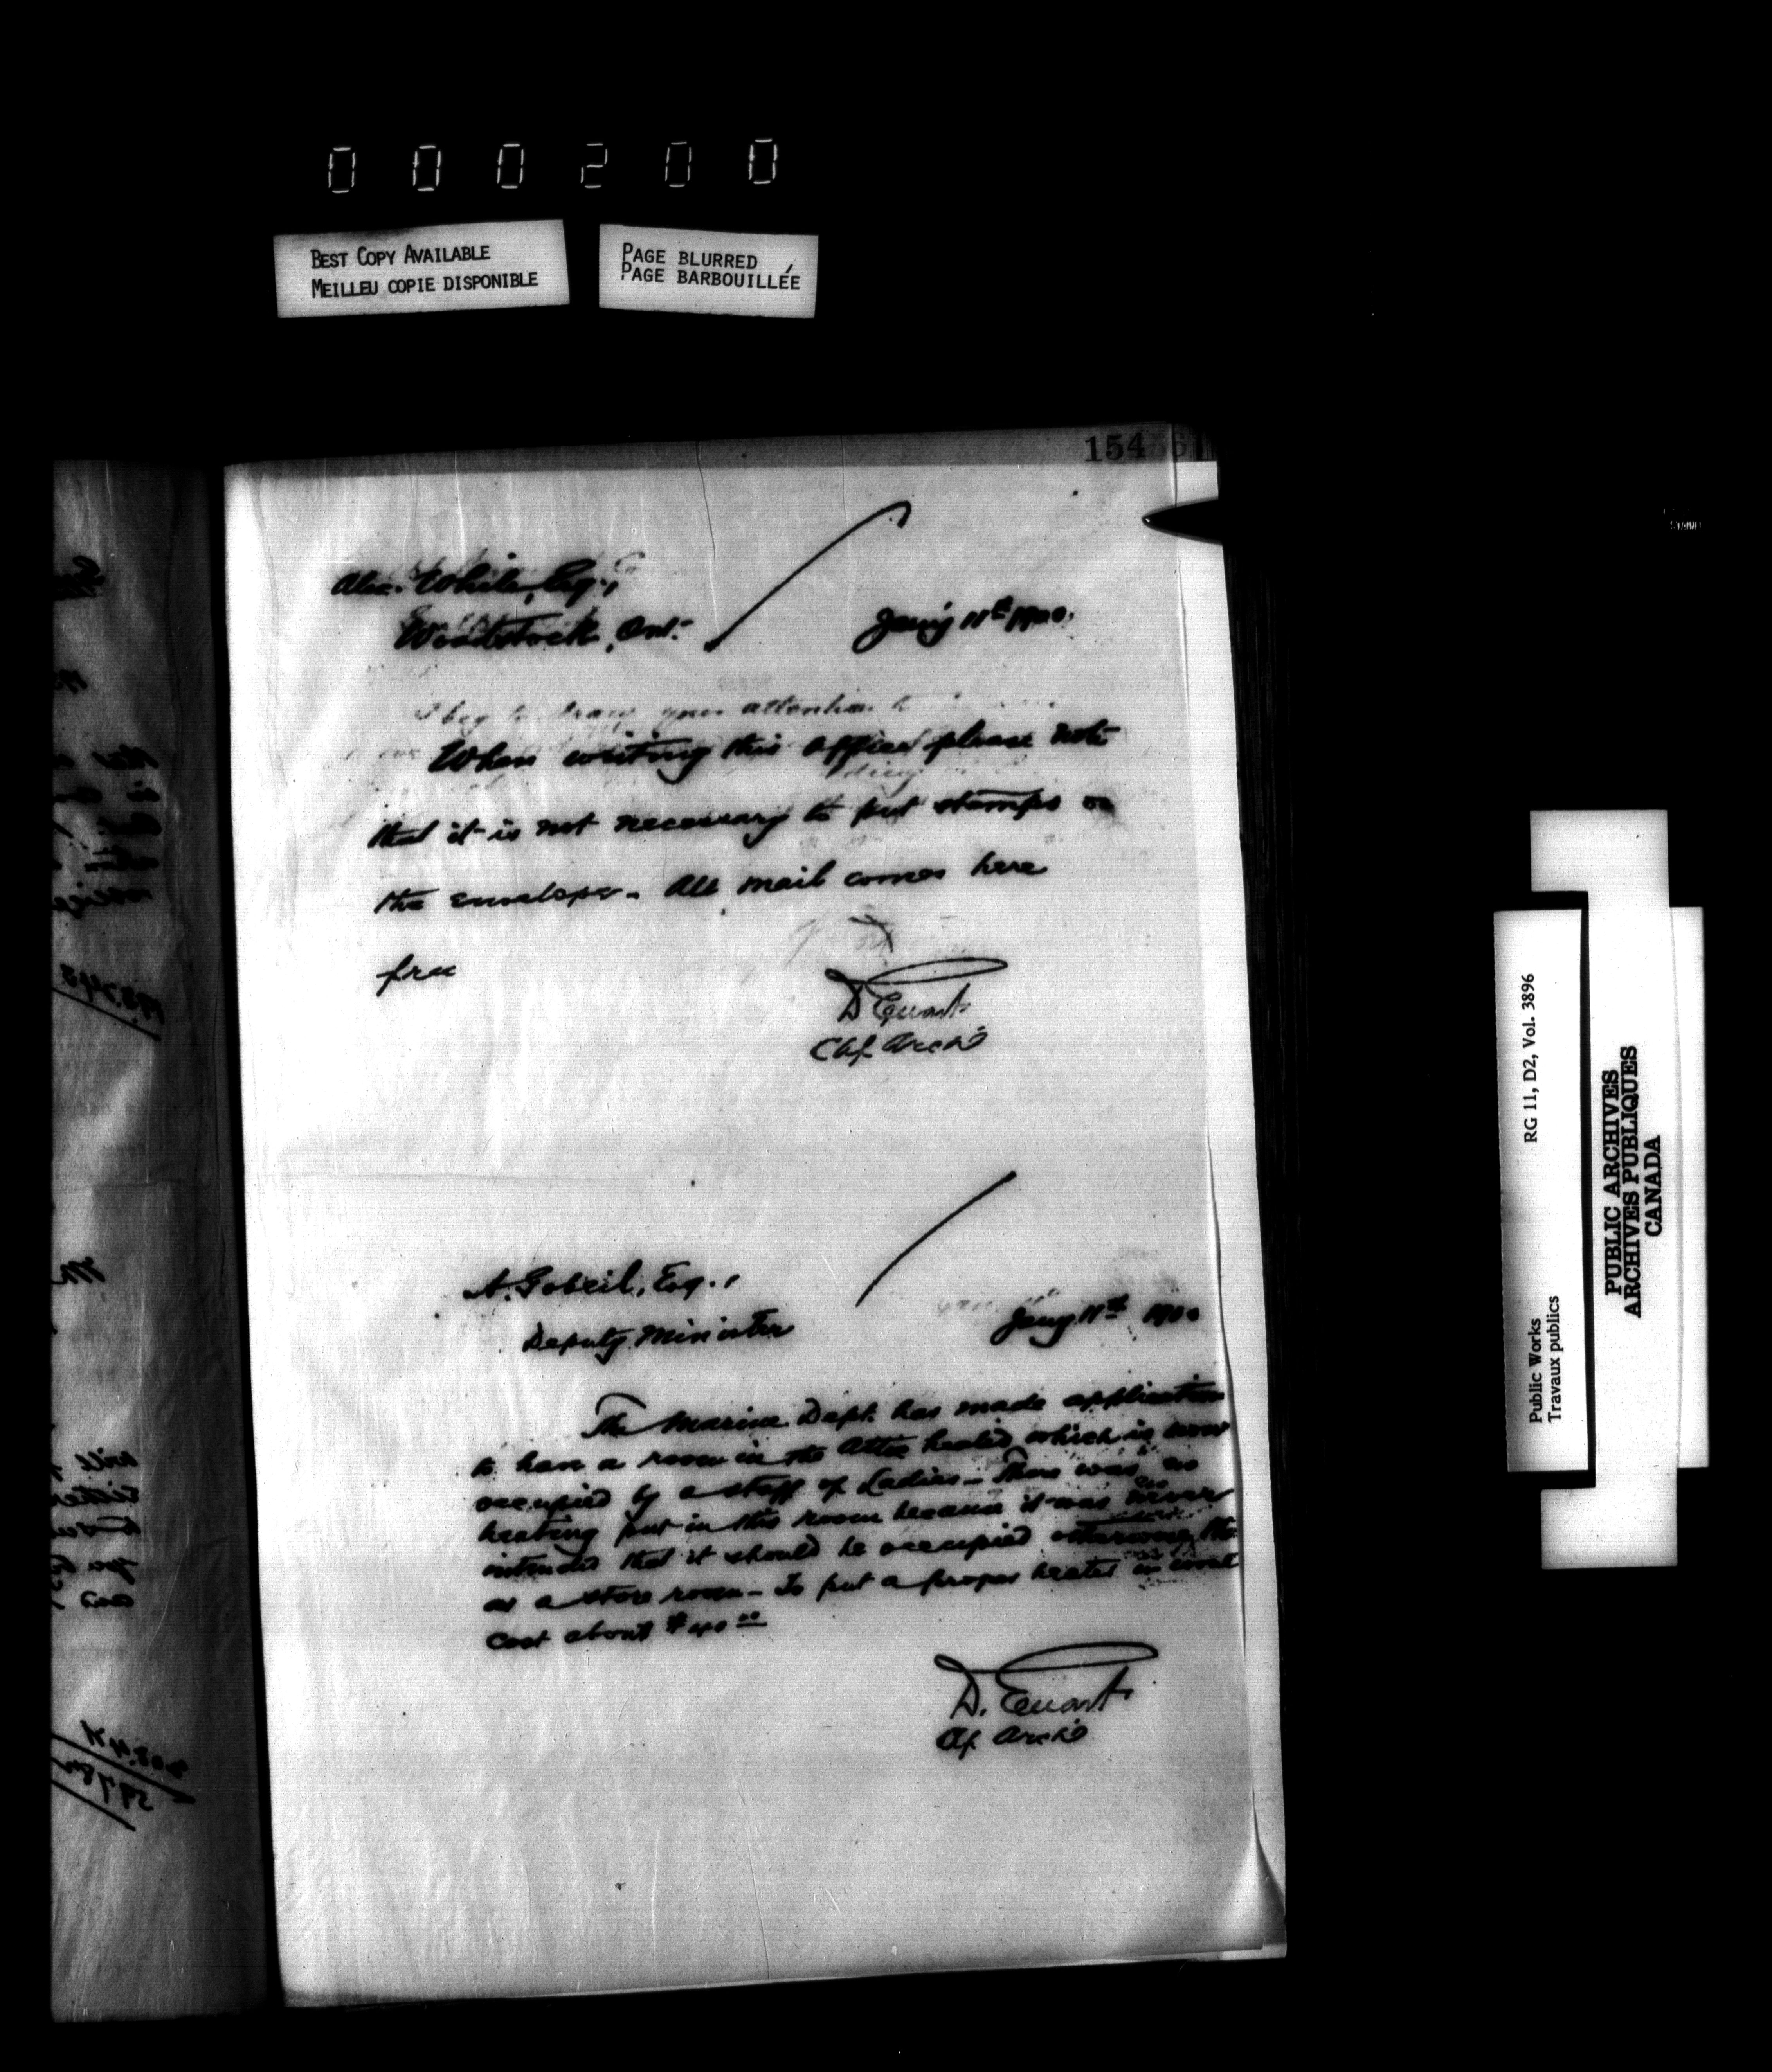 000200
BEST COPY AVAILABLE
MEILLEU COPIE DISPONIBLE
PAGE BLURRED
PAGE BARBOUILLÉE
154
Alex. White, Esq.,
Woodstock, Ont.
Jany 11th 1900.
I beg to draw your attention to
When writing this office please note
that it is not necessary to put stamps on
the envelope. All mail comes here
free
D Ewart
Chf. Archt
A. Gobeil, Esq.,
Deputy Minister
Jany 11th 1900
The Marine Dept. has made application
to have a room in the Attic heated which is now
occupied by a staff of Ladies - There was no
heating put in this room because it was never
intended that it should be occupied otherwise than
as a store room - To put a proper heater in would
cost about $40.00
D. Ewart
Cf. Archt
RG 11, D2, Vol. 3896
Public Works
Travaux publics
PUBLIC ARCHIVES
ARCHIVES PUBLIQUES
CANADA